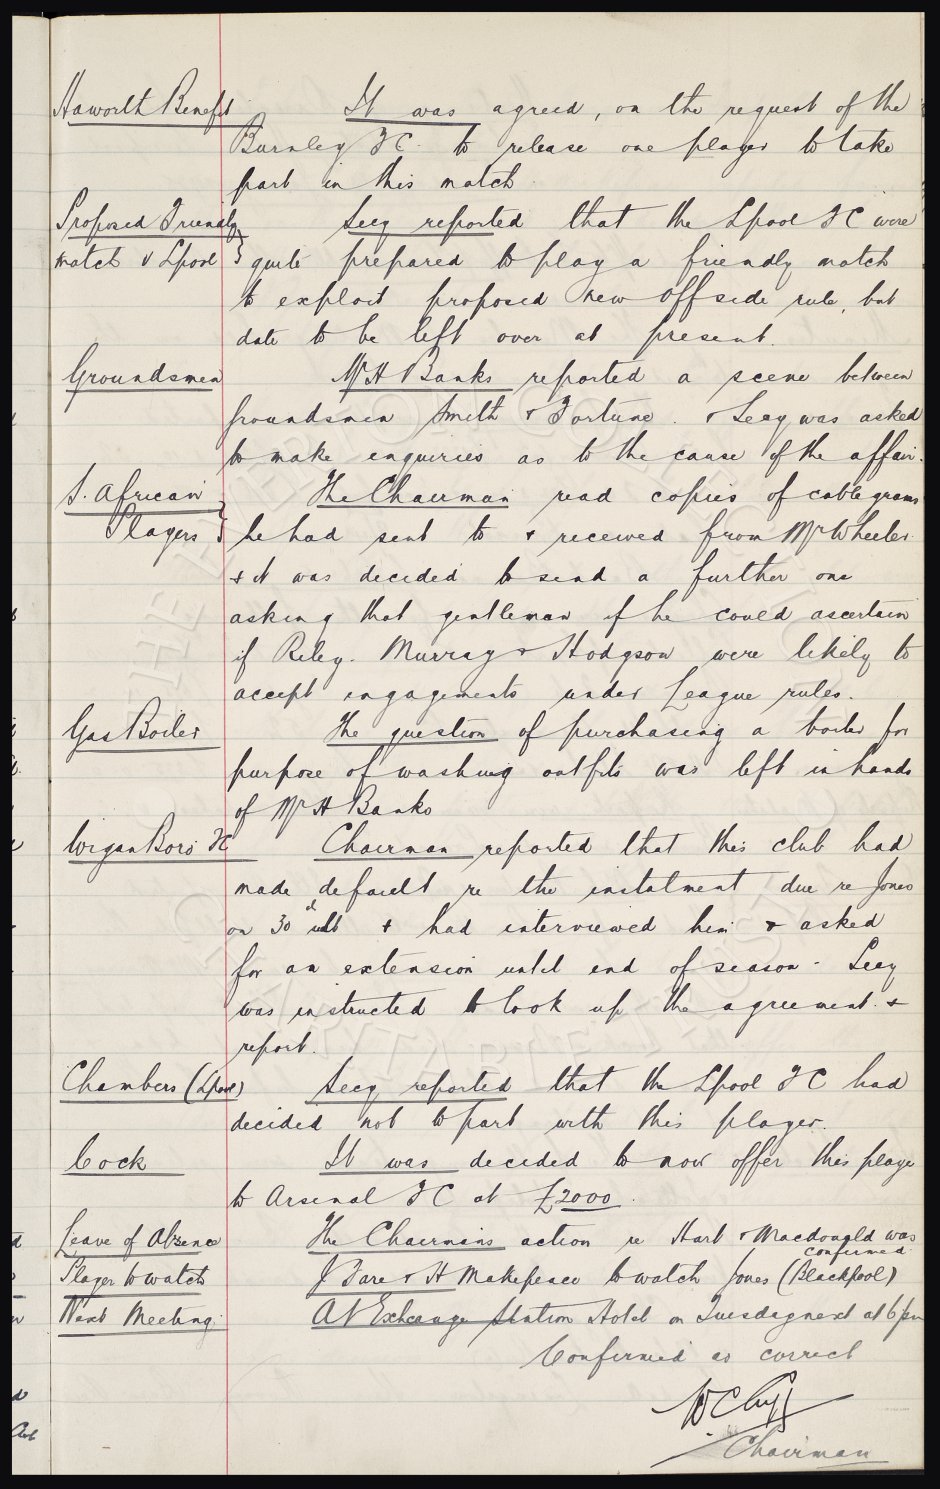 Haworth Benefit It was agreed, on the request of the
Burnley FC. to release one player to take
part in this match.
Proposed Friendly Secy reported that the Lpool FC were
match v Lpool } quite prepared to play a friendly match
to exploit proposed new offside rule, but
date to be left over at present.
Groundsmen Mr H Banks reported a scene between
groundsmen Smith & Fortune. & Secy was asked
to make enquiries as to the cause of the affair.
S. African The Chairman read copies of cablegrams
Players } he had sent to & received from Mr Wheeler
& it was decided to send a further one
asking that gentleman if he could ascertain
if Riley. Murray & Hodgson were likely to
accept engagements under League rules.
Gas Boiler The question of purchasing a boiler for
purpose of washing outfits was left in hands
of Mr H Banks
Wigan Boro' FC Chairman reported that this club had
made default re the instalment due re Jones
on 30th ult & had interviewed him & asked
for an extension until end of season - Secy
was instructed to look up the agreement. &
report.
Chambers (Lpool) Secy reported that the Lpool FC had
decided not to part with this player.
Cock It was decided to now offer this player
to Arsenal FC at £2000.
Leave of Absence The Chairmans action re Hart & Macdonald was
confirmed.
Player to watch J Fare & H Makepeace to watch Jones (Blackpool)
Next Meeting. At Exchange Station Hotel on Tuesday next at 6 pm
Confirmed as correct
WC Cuff
Chairman